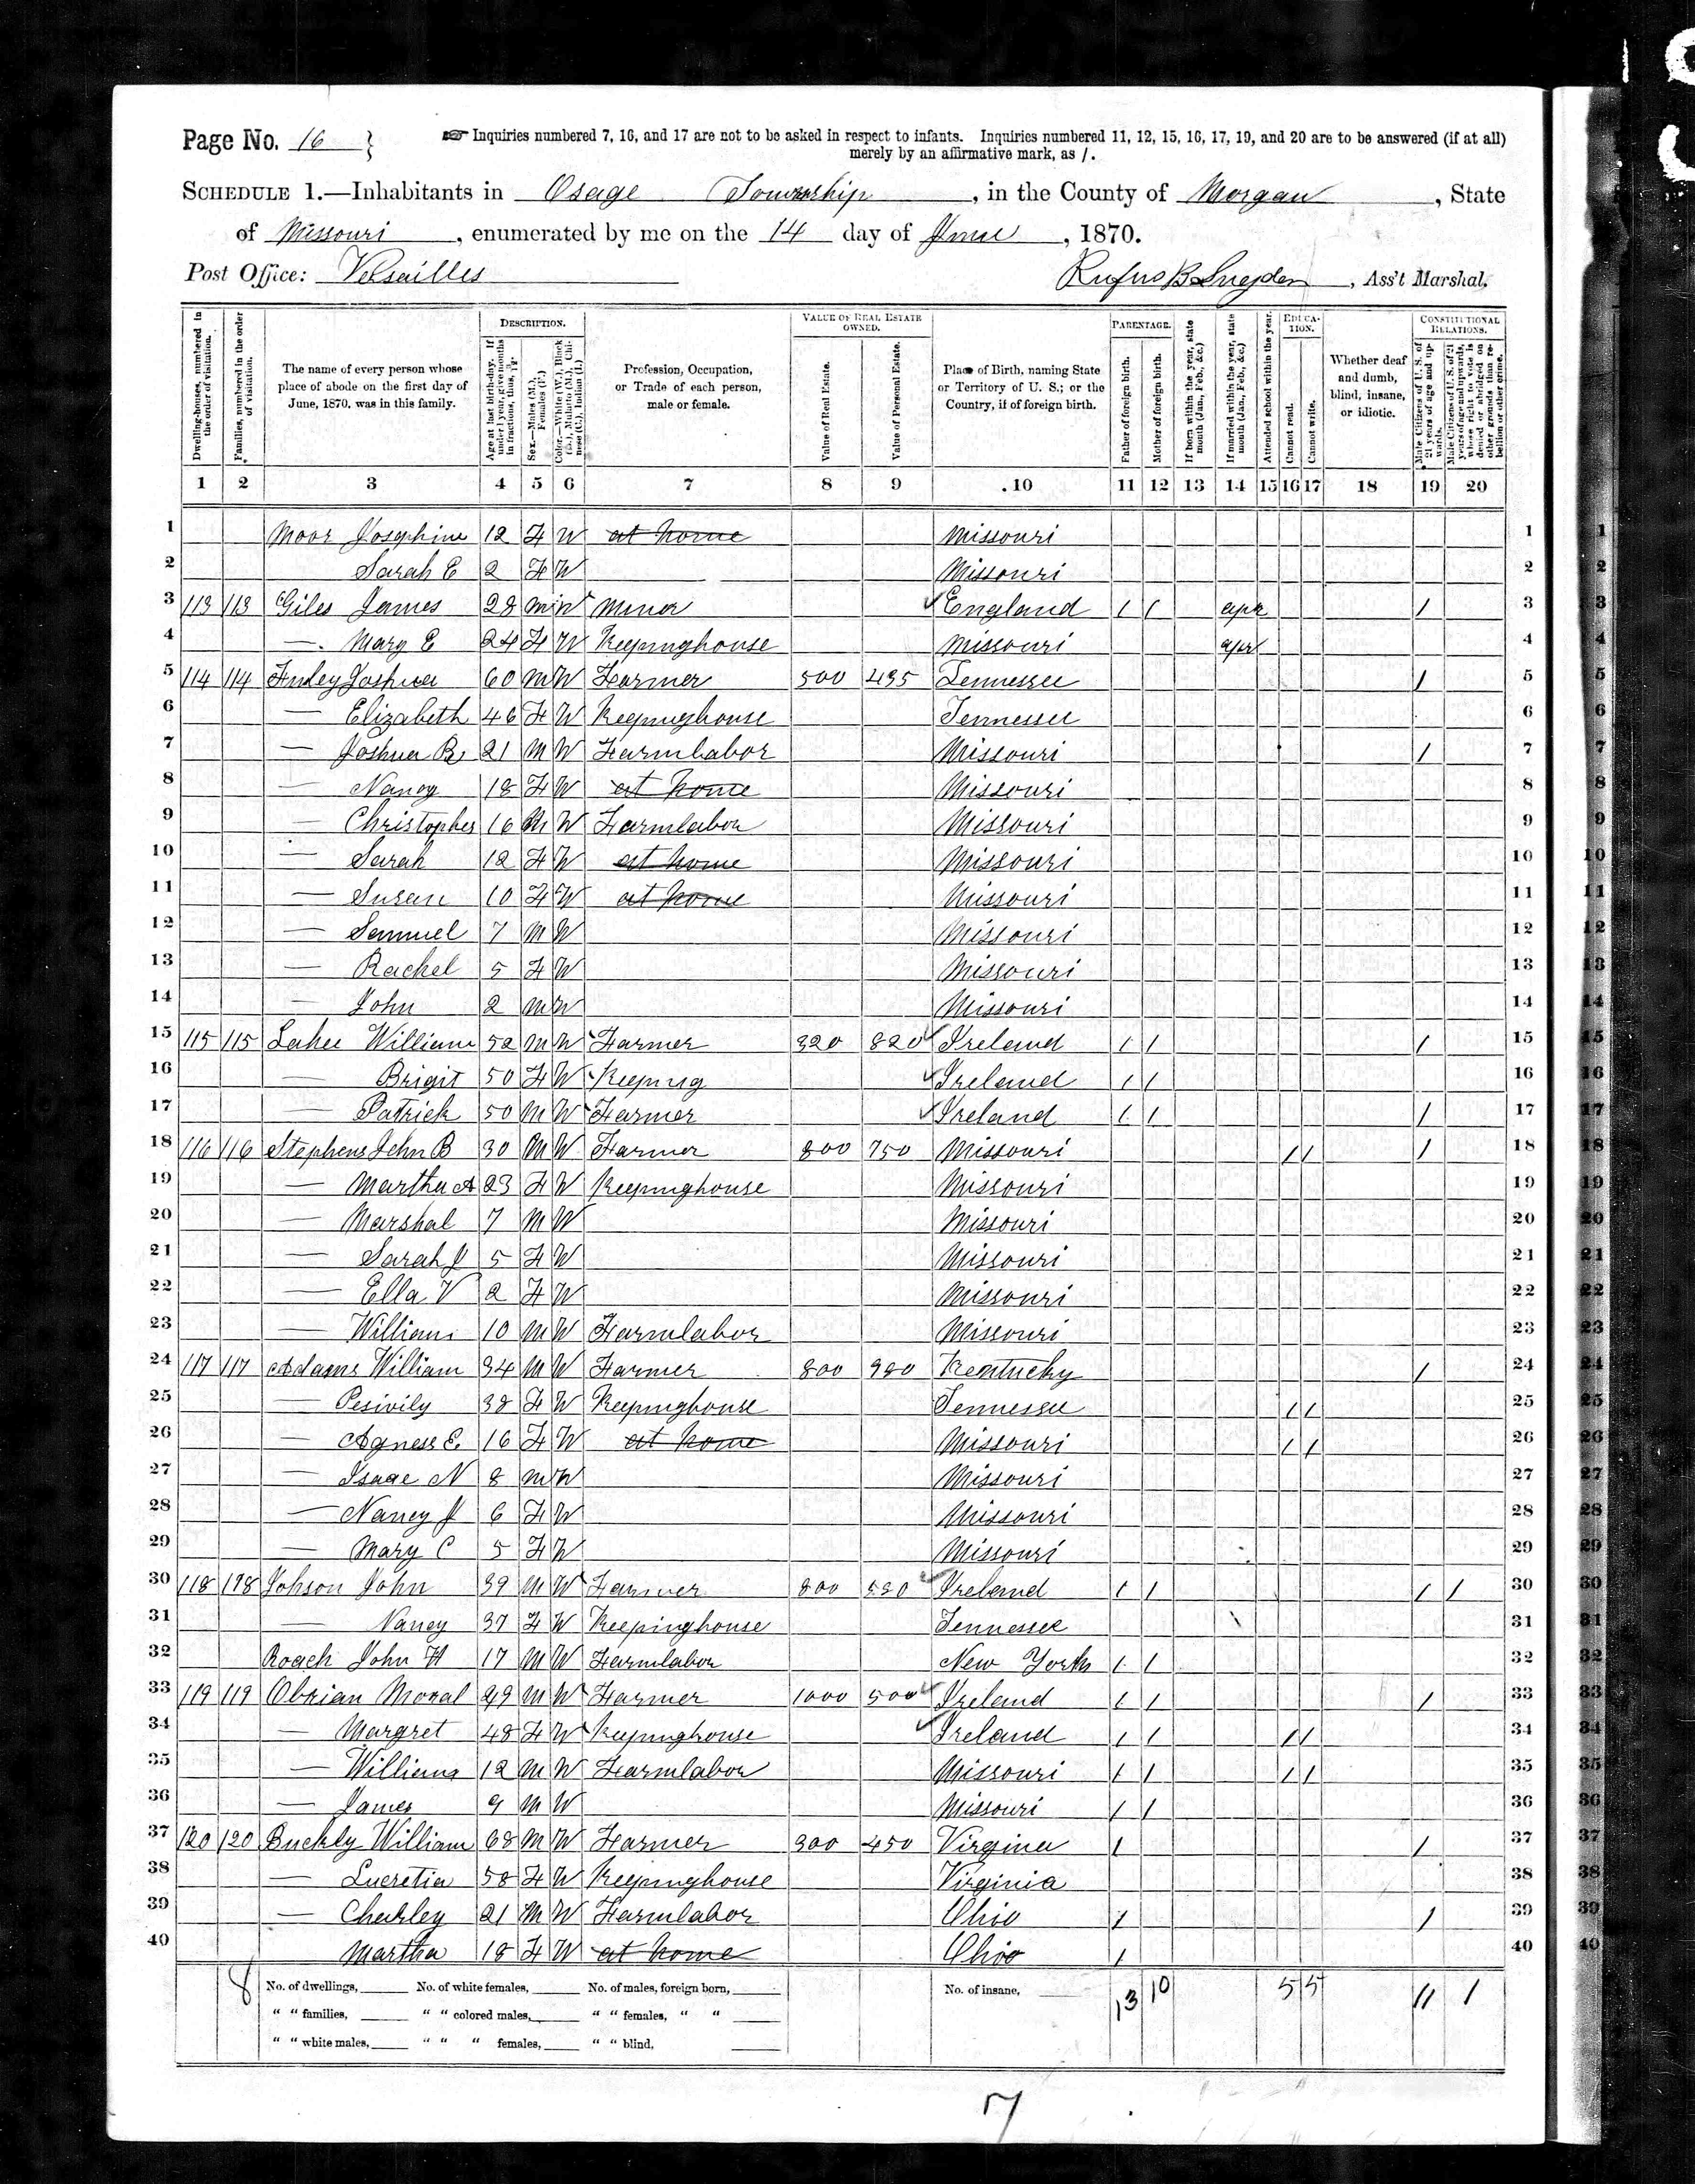 Page No. 16
☞ Inquiries numbered 7, 16, and 17 are not to be asked in respect to infants. Inquiries numbered 11, 12, 15, 16, 17, 19, and 20 are to be answered (if at all)
merely by an affirmative mark, as /.
SCHEDULE 1.—Inhabitants in Osage Township, in the County of Morgan, State
of Missouri, enumerated by me on the 14 day of June, 1870.
Post Office: Versailles
Rufus B , Ass't Marshal.
Dwelling-houses, numbered in the order of visitation.
Families, numbered in the order of visitation.
The name of every person whose place of abode on the first day of June, 1870, was in this family.
DESCRIPTION.
Age at last birth-day. If under 1 year, give months in fractions, thus, 3/12.
Sex.—Males (M.), Females (F.)
Color.—White (W.), Black (B.), Mulatto (M.), Chinese (C.), Indian (I.)
Profession, Occupation, or Trade of each person, male or female.
VALUE OF REAL ESTATE OWNED.
Value of Real Estate.
Value of Personal Estate.
Place of Birth, naming State or Territory of U. S.; or the Country, if of foreign birth.
PARENTAGE.
Father of foreign birth.
Mother of foreign birth.
If born within the year, state month (Jan., Feb., &c.)
If married within the year, state month (Jan., Feb., &c.)
Attended school within the year.
EDUCATION.
Cannot read.
Cannot write.
Whether deaf and dumb, blind, insane, or idiotic.
CONSTITUTIONAL RELATIONS.
Male Citizens of U. S. of 21 years of age and upwards.
Male Citizens of U. S. of 21 years of age and upwards, whose right to vote is denied or abridged on other grounds than rebellion or other crime.
1 2 3 4 5 6 7 8 9 10 11 12 13 14 15 16 17 18 19 20
1 Moor Josephine 12 F W at home Missouri 1 1
2 Sarah E 2 F W Missouri 2 2
3 113 113 Giles James 28 M W Minor England / / apr / 3 3
4 — Mary E 24 F W Keepinghouse Missouri apr 4 4
5 114 114 Finley Joshua 60 M W Farmer 500 435 Tennessee / 5 5
6 — Elizabeth 46 F W Keepinghouse Tennessee 6 6
7 — Joshua B 21 M W Farmlabor Missouri / 7 7
8 — Nancy 18 F W at home Missouri 8 8
9 — Christopher 16 M W Farmlabor Missouri 9 9
10 — Sarah 12 F W at home Missouri 10 10
11 — Susan 10 F W at home Missouri 11 11
12 — Samuel 7 M W Missouri 12 12
13 — Rachel 5 F W Missouri 13 13
14 — John 2 M W Missouri 14 14
15 115 115 Lahee William 52 M W Farmer 320 820 Ireland / / / 15 15
16 — Brigit 50 F W Keeping Ireland / / 16 16
17 — Patrick 50 M W Farmer Ireland / / / 17 17
18 116 116 Stephens John B 30 M W Farmer 800 750 Missouri / / / 18 18
19 — Martha A 23 F W Keepinghouse Missouri 19 19
20 — Marshal 7 M W Missouri 20 20
21 — Sarah J 5 F W Missouri 21 21
22 — Ella V 2 F W Missouri 22 22
23 — William 10 M W Farmlabor Missouri 23 23
24 117 117 Adams William 34 M W Farmer 800 980 Kentucky / 24 24
25 — Pesivily 38 F W Keepinghouse Tennessee / / 25 25
26 — Agness E. 16 F W at home Missouri / / 26 26
27 — Isaac N 8 M W Missouri 27 27
28 — Nancy J 6 F W Missouri 28 28
29 — Mary C 5 F W Missouri 29 29
30 118 118 Johson John 39 M W Farmer 800 Ireland / / / / 30 30
31 — Nancy 37 F W Keepinghouse Tennessee 31 31
32 Roach John H 17 M W Farmlabor New York / / 32 32
33 119 119 Obrian Moral 49 M W Farmer 1000 500 Ireland / / / 33 33
34 — Margret 48 F W Keepinghouse Ireland / / / / 34 34
35 — William 12 M W Farmlabor Missouri / / / / 35 35
36 — James 9 M W Missouri / / 36 36
37 120 120 Buckly William 68 M W Farmer 300 450 Virginia / / 37 37
38 — Lucretia 58 F W Keepinghouse Virginia 38 38
39 — Charley 21 M W Farmlabor Ohio / / 39 39
40 Martha 18 F W at home Ohio / 40 40
8 No. of dwellings, No. of white females, No. of males, foreign born, No. of insane, 13 10 5 5 11 1
" " families, " " colored males, " " females, " "
" " white males, " " " females, " " blind,
7